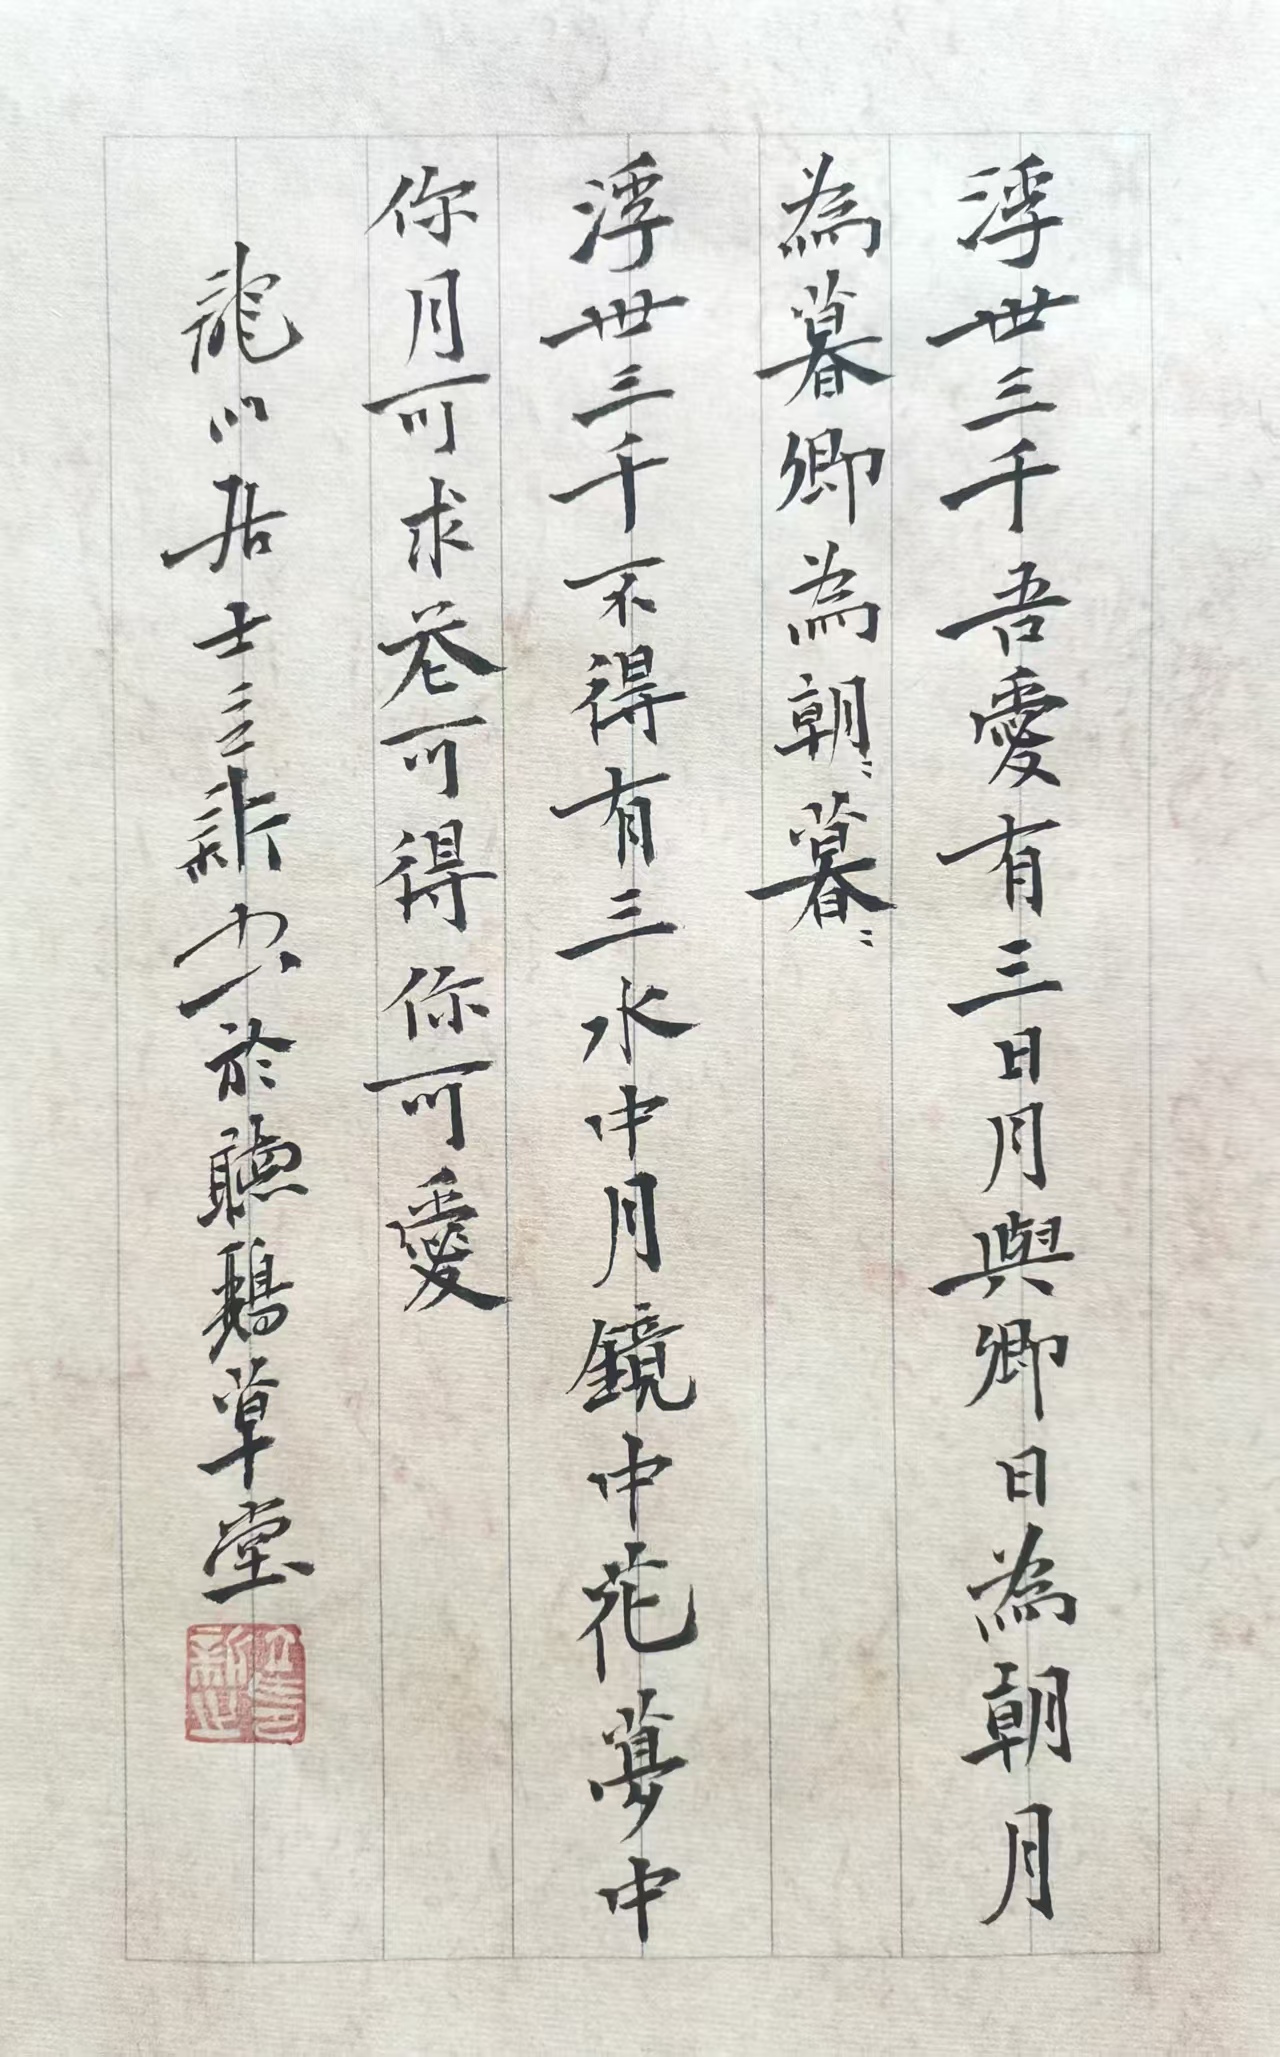 浮世三千吾愛有三日月與卿日為朝月
為暮卿為朝〻暮〻
浮世三千不得有三水中月鏡中花夢中
你月可求花可得你可愛
龍川居士立新書於聽鵝草堂